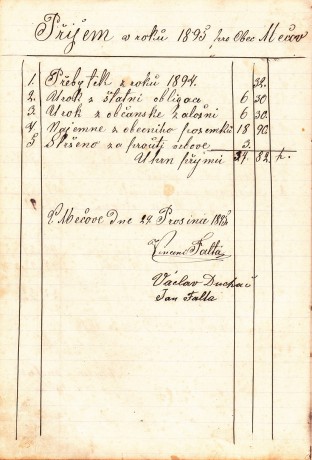 Příjem v roku 1895 pro Obec Mečov
1. Přebytek z roků 1894. 32.
2. Urok z štatni obligac 6 30
3. Urok z občanske založni 6 30.
4. Najemne z obecniho pozemků 18 90
5 Strženo za proutí 3.
Uhrn přijmů 82 k.
V Mečove dne 24 Prosince
Falta
Václav
Jan Falta